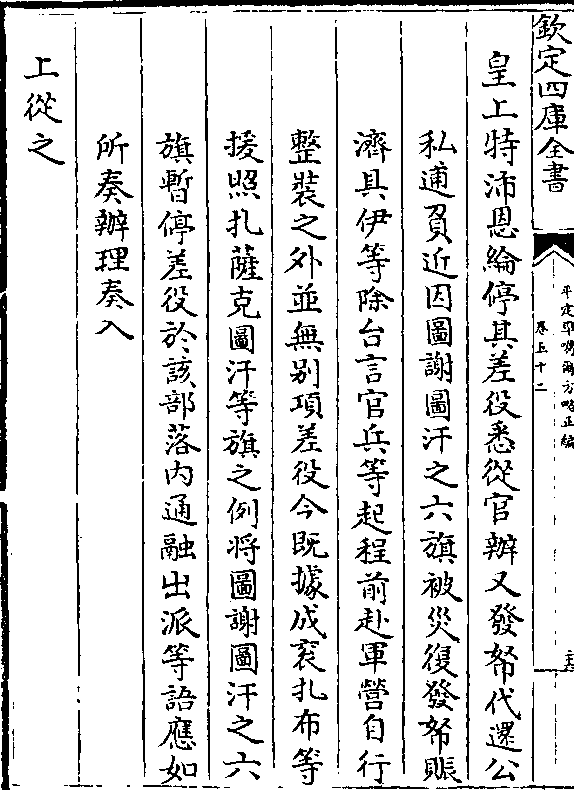 欽定四庫全書
平定準噶爾方略正編
卷五十二
皇上特沛恩綸停其差役悉從官辦又發帑代還公
私逋負近因圖謝圖汗之六旗被災復發帑賑
濟具伊等除台言官兵等起程前赴軍營自行
整裝之外並無别項差役今既據成衮扎布等
援照扎薩克圖汗等旗之例将圖謝圖汗之六
旗暫停差役於該部落内通融出派等語應如
所奏辦理奏入
上從之